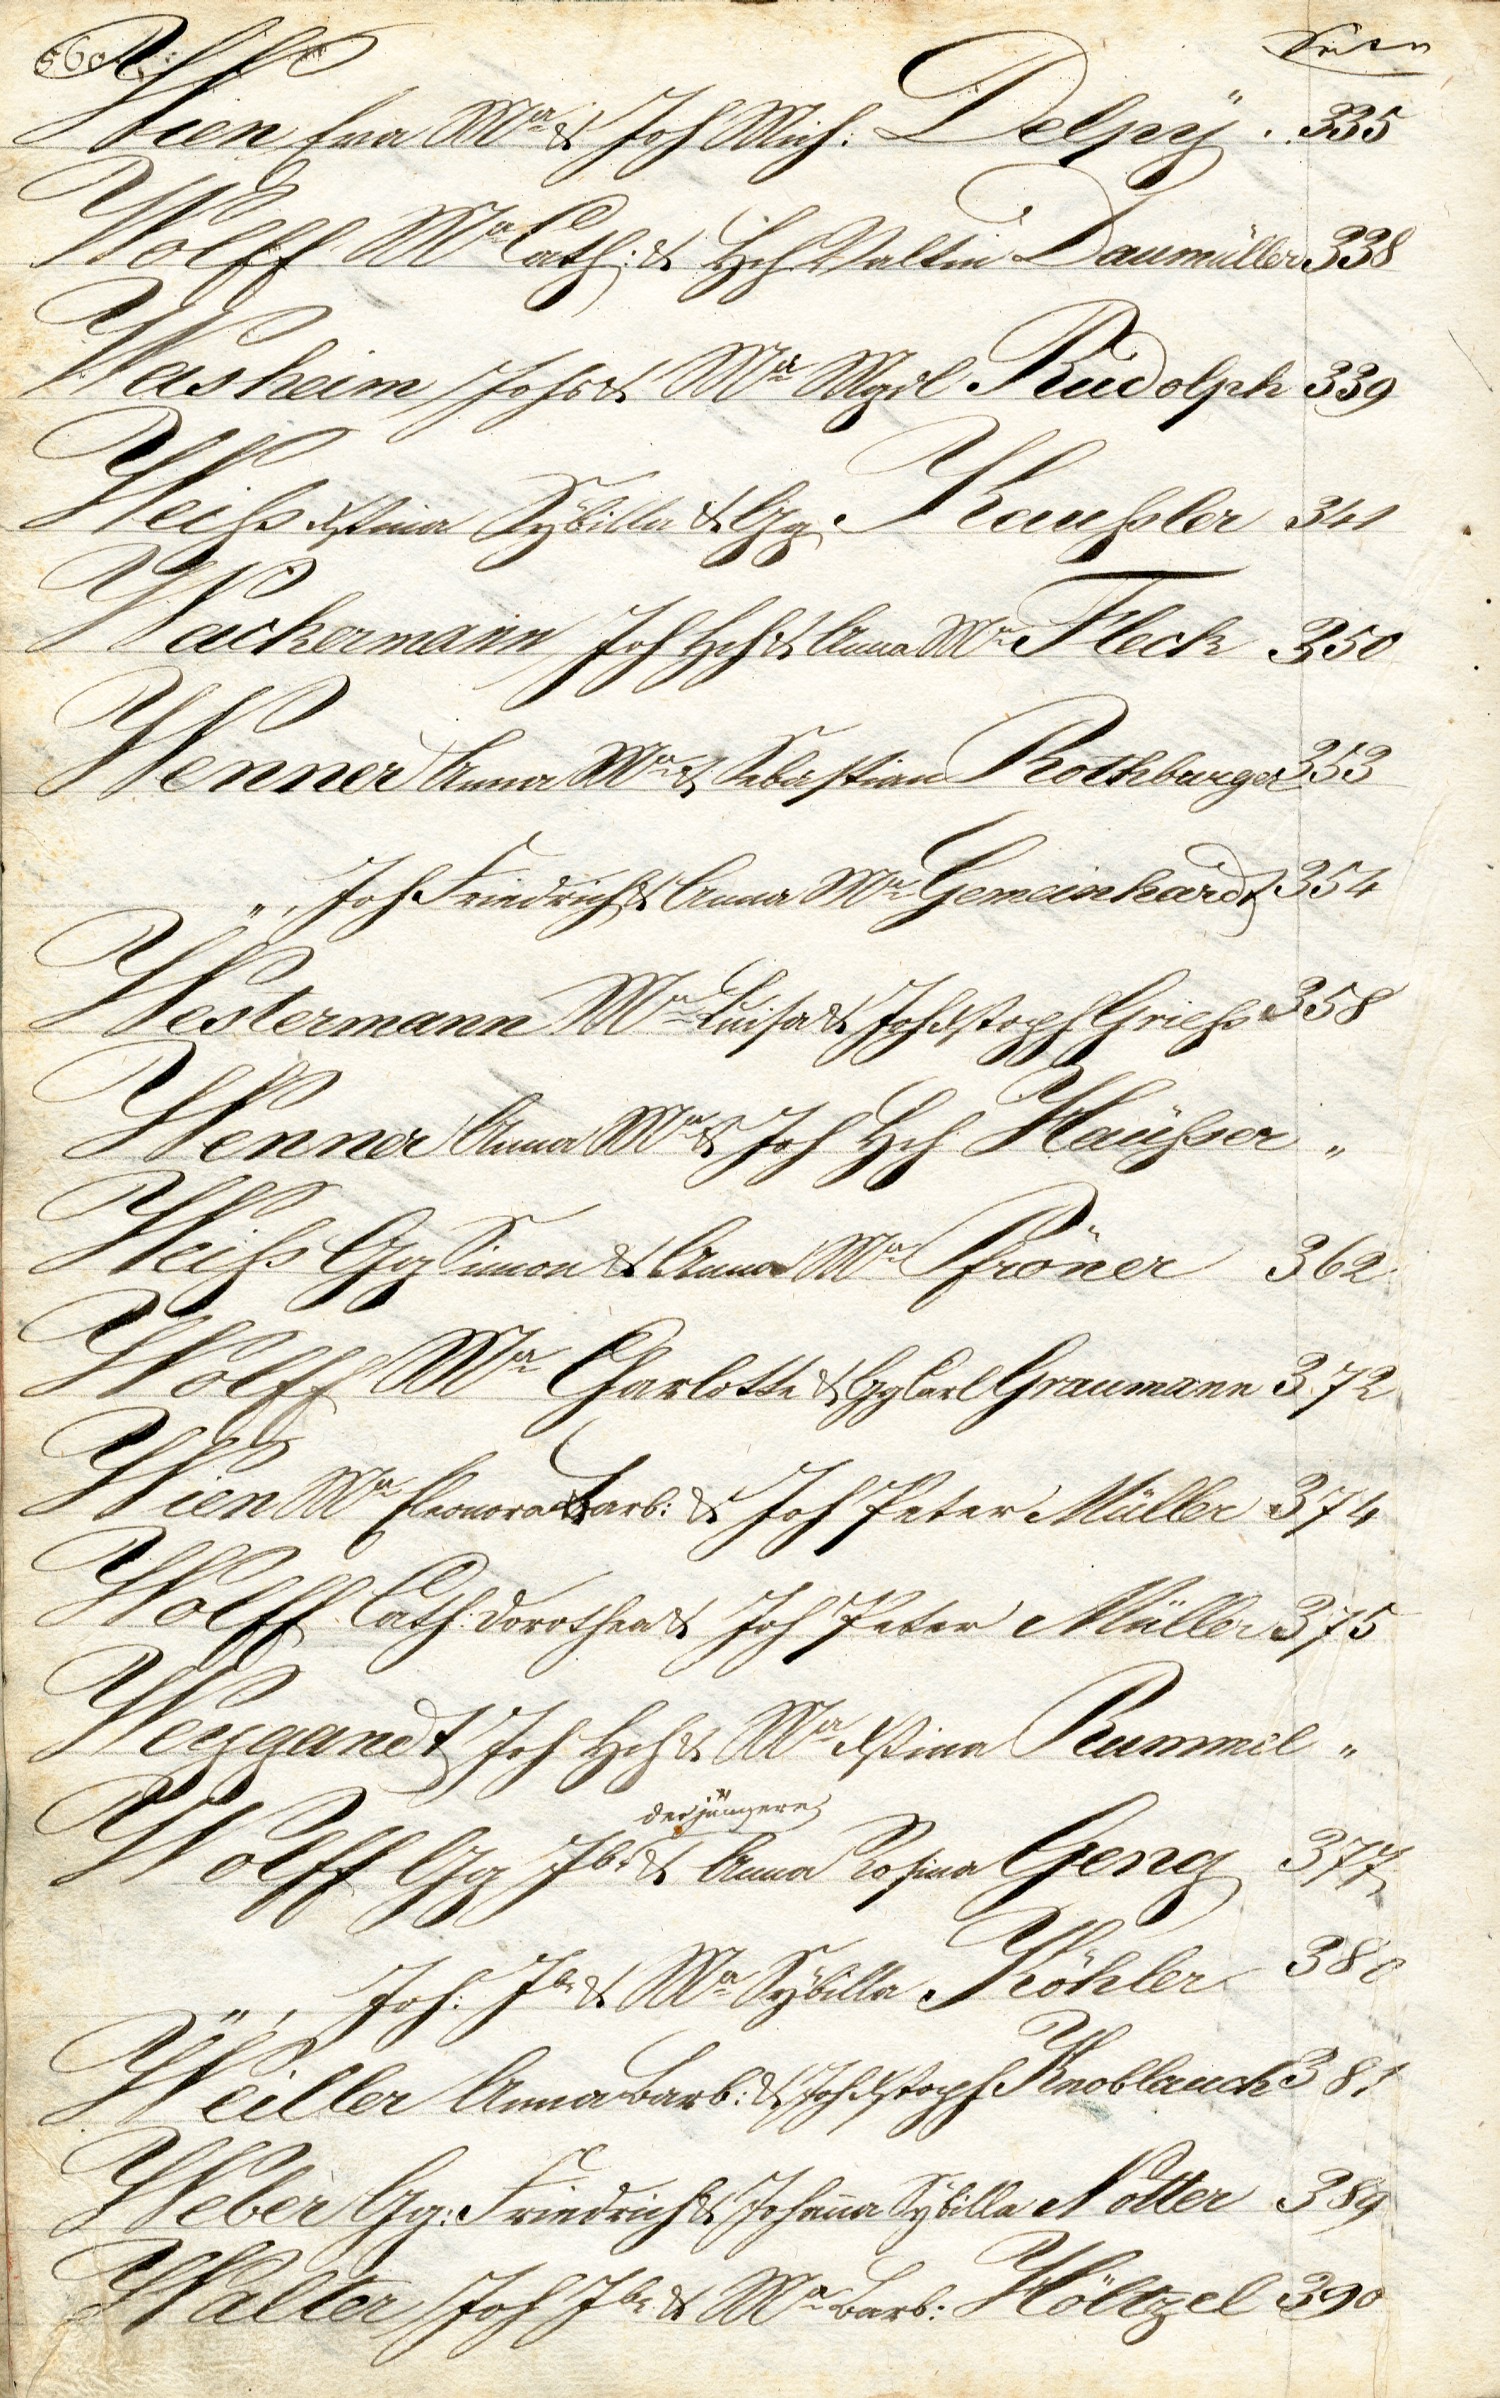 560. Seite
Wien Eva Ma & Joh Mich: Delpÿ. 335
Wolff Ma Cath: & Hch Valtin Daumüller 338
Washeim Johs & Ma Mgdl Rudolph 339
Weihs Xstina Sÿbilla & Gg. Kauhsler 341
Wackermann Joh Hch & Anna Ma Fleck 350
Wenner Anna Ma & Sebastian Rothburger 353
" Joh Friedrich & Anna Ma Gemeinhardt 354
Westermann Ma Luisa & Joh Xstoph Griehs 358
Wenner Anna Ma & Joh Hch Häuhser "
Weihs Gg Simon & Anna Ma Pfröner 362
Wolff Ma Charlotte & Gg Carl Graumann 372
Wien Ma Eleonora Barb: & Joh Peter Müller 374
Wolff Cath: Dorothea & Joh Peter Müller 375
Weygandt Joh Hch & Ma Xstina Rummel "
der jüngere
Wolff Gg Jb: & Anna Rosina Geng 377
" Joh: Jb & Ma Sÿbilla Köhler 380
Weiller Anna Barb: & Joh Xstoph Knoblauch 381
Weber Gg: Friedrich & Johanna Sÿbilla Notter 389
Walter Joh Jb & Ma Barb: Höltzel 390